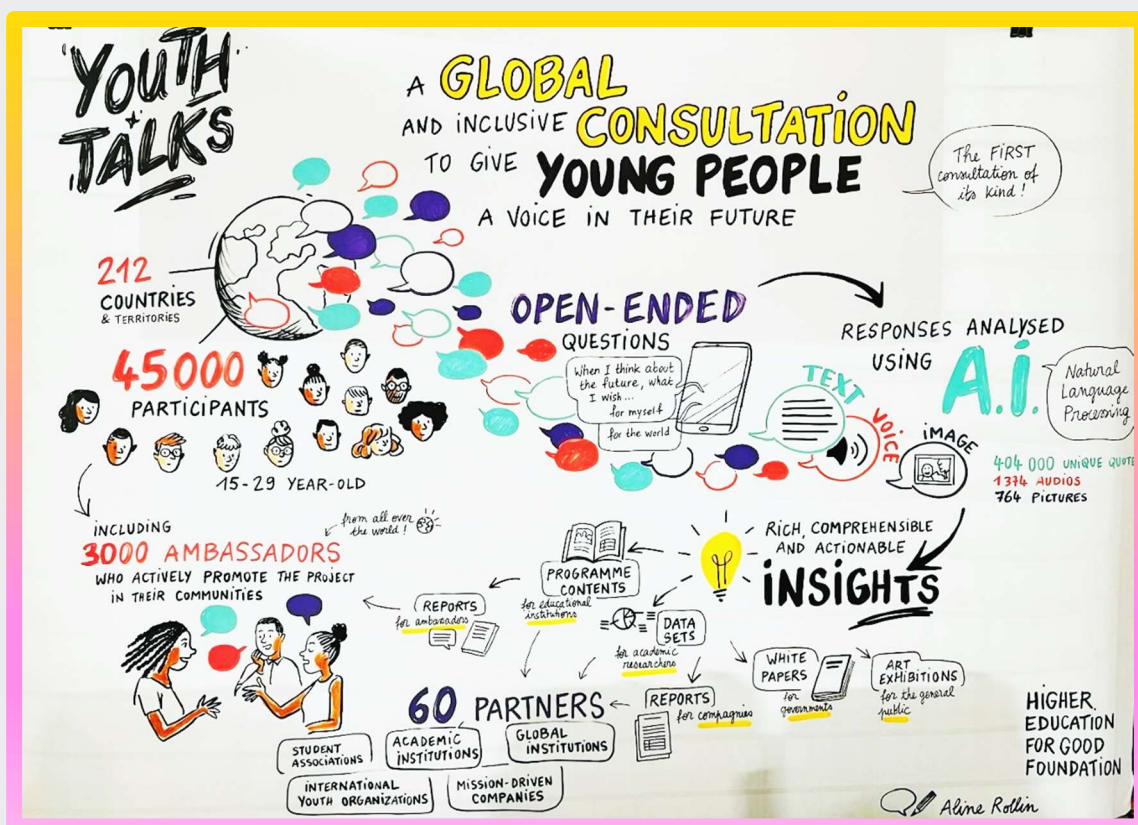 YOUTH
TALKS
A GLOBAL
AND INCLUSIVE CONSULTATION
TO GIVE YOUNG PEOPLE
A VOICE IN THEIR FUTURE
The FIRST
consultation of
its kind!
212
COUNTRIES
& TERRITORIES
45000
PARTICIPANTS
15-29 YEAR-OLD
OPEN-ENDED
QUESTIONS
When I think about
the future, what
I wish...
for myself
for the world
RESPONSES ANALYSED
USING A.i.
Natural
Language
Processing
TEXT
VOICE
iMAGE
404 000 UNIQUE QUOTE
1374 AUDIOS
764 PICTURES
INCLUDING
3000 AMBASSADORS
WHO ACTIVELY PROMOTE THE PROJECT
IN THEIR COMMUNITIES
from all over
the world!
RICH, COMPREHENSIBLE
AND ACTIONABLE
iNSIGHTS
PROGRAMME
CONTENTS
for educational
institutions
REPORTS
for ambassadors
DATA
SETS
for academic
researchers
WHITE
PAPERS
for
governments
ART
EXHIBITIONS
for the general
public
REPORTS
for compagnies
60 PARTNERS
STUDENT
ASSOCIATIONS
ACADEMIC
INSTITUTIONS
GLOBAL
INSTITUTIONS
INTERNATIONAL
YOUTH ORGANIZATIONS
MISSION-DRIVEN
COMPANIES
HIGHER
EDUCATION
FOR GOOD
FOUNDATION
Aline Rollin